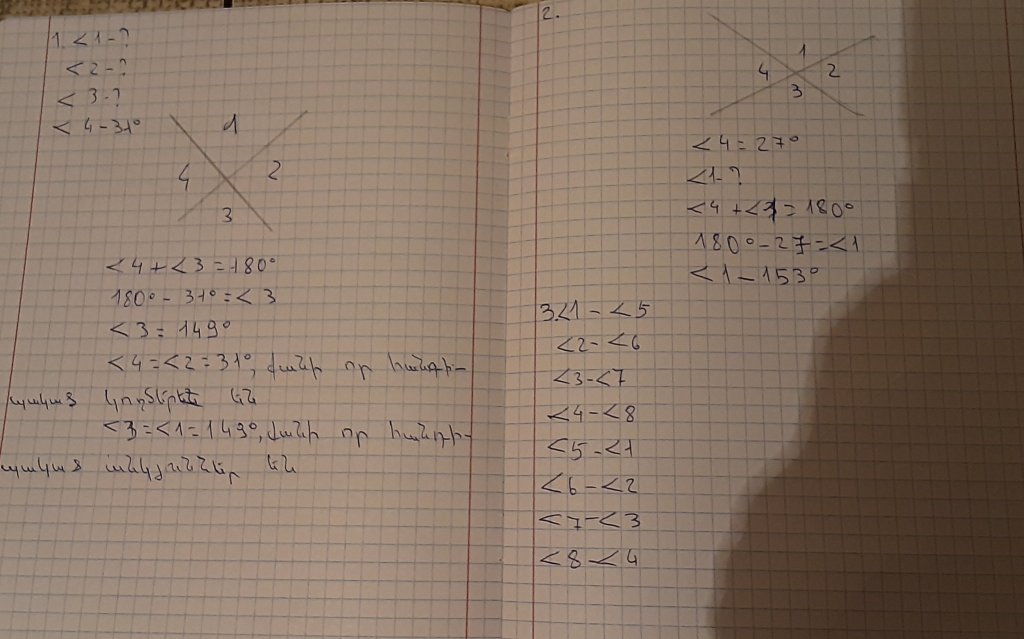 1. <1-?
<2-?
<3-?
<4-31°
1
4 2
3
<4+<3=180°
180°-31°=<3
<3=149°
<4=<2=31°, քանի որ հանդի-
պակաց կողմերը են
<3=<1=149°, քանի որ հանդի-
պակաց անկյուններ են
2.
1
4 2
3
<4=27°
<1-?
<4+<1=180°
180°-27=<1
<1-153°
3.<1-<5
<2-<6
<3-<7
<4-<8
<5-<1
<6-<2
<7-<3
<8-<4